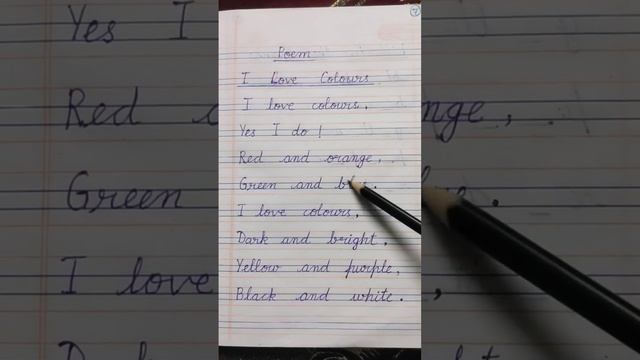 7
Poem
I Love Colours
I love colours,
Yes I do !
Red and orange,
Green and
I love colours,
Dark and bright,
Yellow and purple,
Black and white.